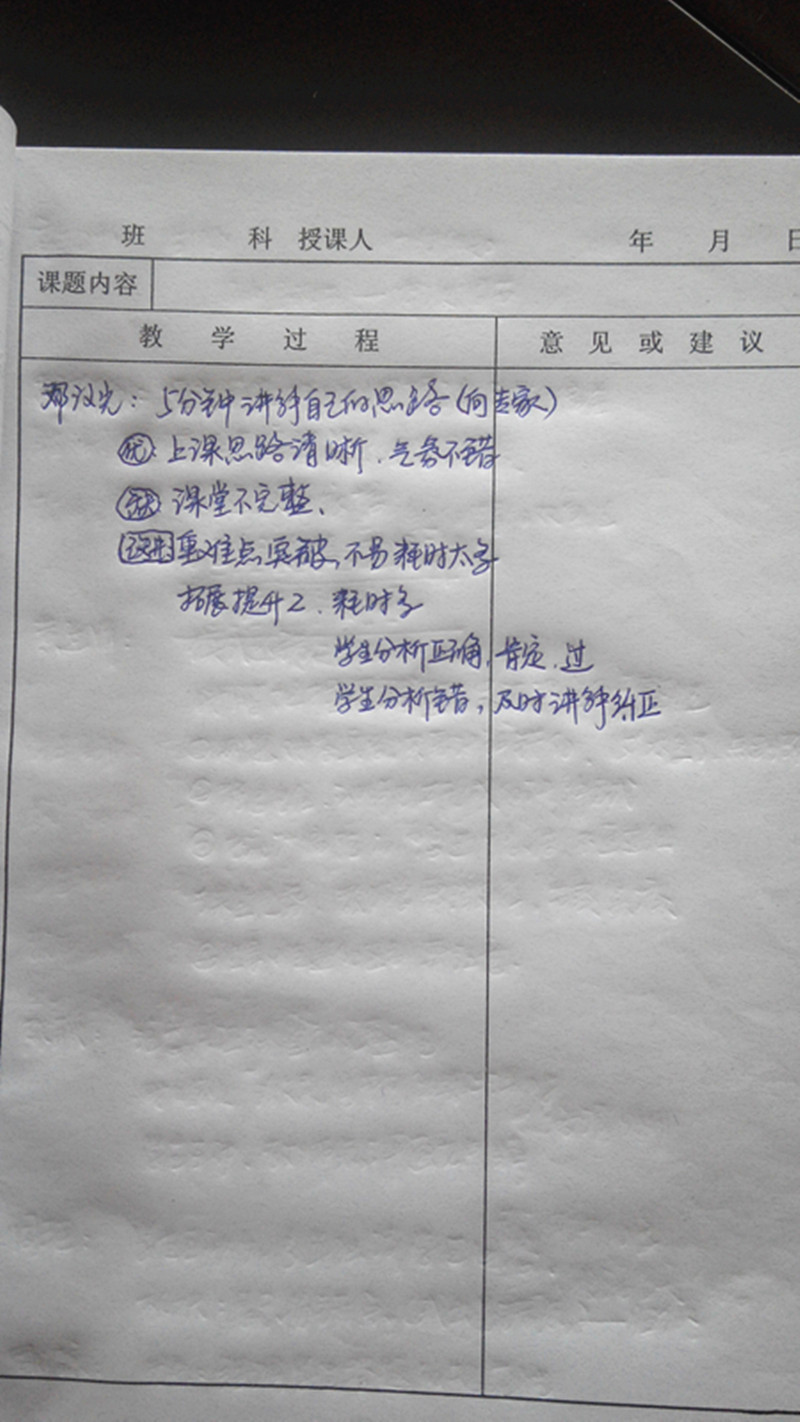 班 科 授课人 年 月 日
课题内容
教 学 过 程 意 见 或 建 议
邓议先：5分钟讲解自己的思路(向专家)
优：上课思路清晰．气氛不错
缺 课堂不完整、
议进 重难点突破，不易耗时太多
拓展提升2．耗时多
学生分析正确，肯定．过
学生分析错，及时讲解纠正